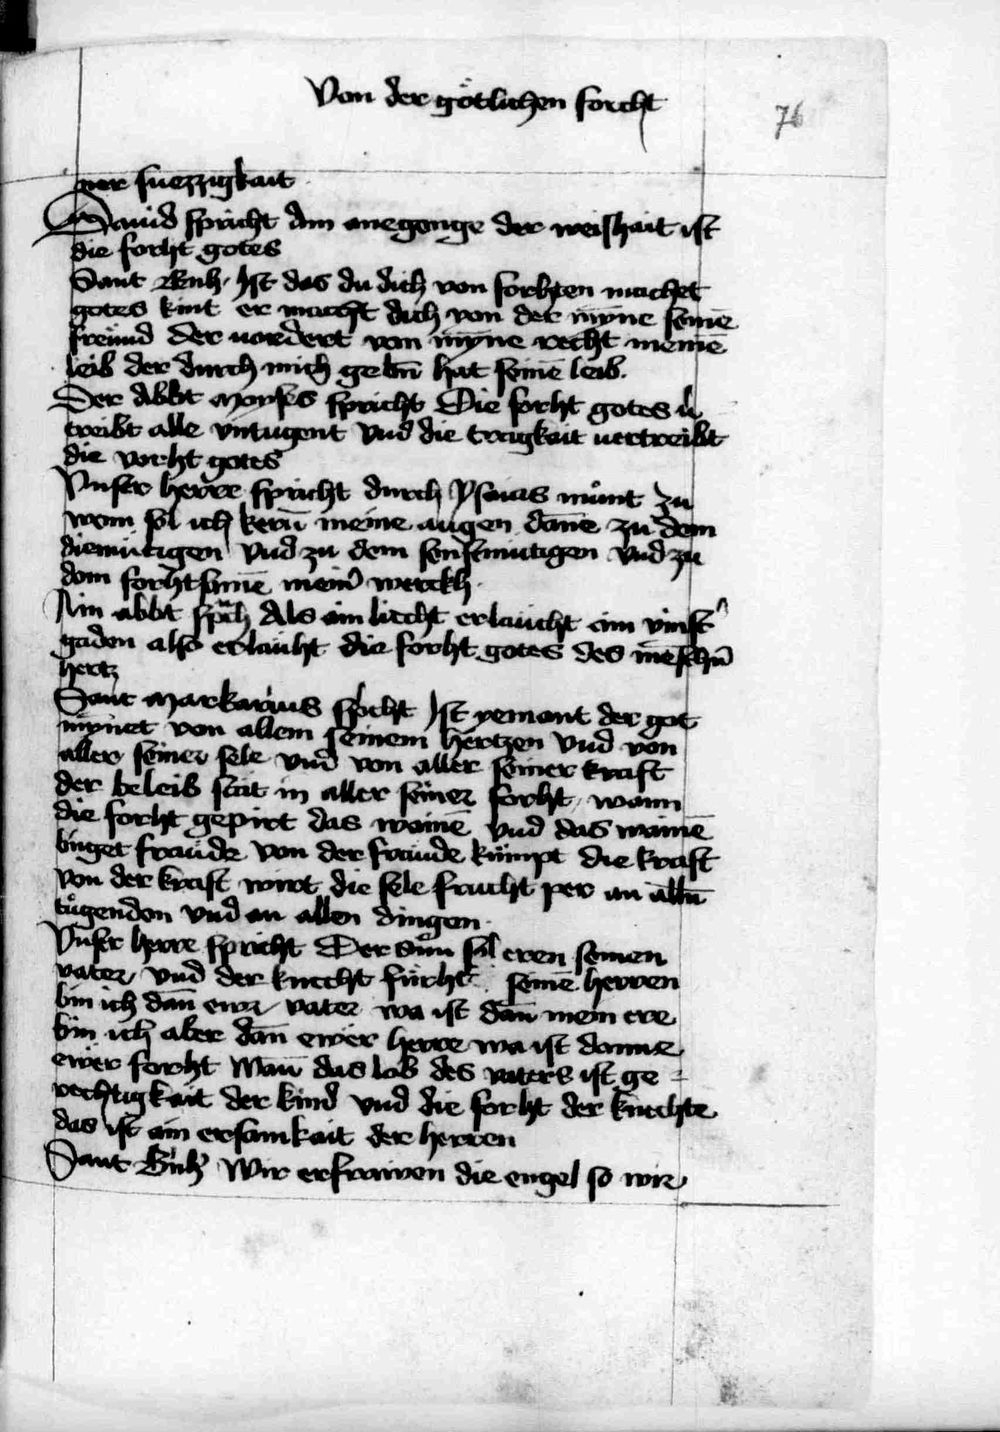 Von der götlichen forcht
76
ner suezzigkait
Dauid spricht Am anegenge der weishait ist
die forht gotes
Sant Bernh. Ist das du dich von forhten machet
gotes kint er macht dich von der mȳne seinē
freünd der vordert von mȳne recht meinē
leib der durch mich gebn̄ hat seinē leib.
Der Abbt Moyses spricht Die forht gotes v̓
treibt alle vntugent vnd die tragkait uertreibt
die vorht gotes
Vnser herre spricht durch ysaias münt Zu
wem sol ich kern̄ meine augen dāne zu dem
diemütigen vnd zu dem senftmütigen vnd zu
dem forhtsamē meinˀ werckh.
Ain abbt spͣch Als ain liecht erlaücht ain vinstˀ
gaden also erlaüht die forht gotes des mēschn̄
hertz
Sant Markarius sp̓cht Ist yemant der got
mynnet von allem seinem hertzen vnd von
aller seiner sele vnd von aller seiner kraft
der beleib stät in aller seiner forht, wann
die forht gepirt das wainē vnd das wainē
bringet fraüde von der fraüde kümpt die kraft
von der kraft wirt die sele frucht per an alln̄
tügenden vnd an allen dingen.
Vnser herre spricht Der sün sol eren seinen
vater, vnd der knecht fürht seinē herren
bin ich dān ewr vater wa ist dān mein ere
bin ich aber dān ewer herre wa ist danne
ewer forht Wān das lob des vaters ist ge=
rechtigkait der kind vnd die forht der knechte
das ist ain ersamkait der herren
Sant Bernhˀ Wir erfrawen die engel so wir